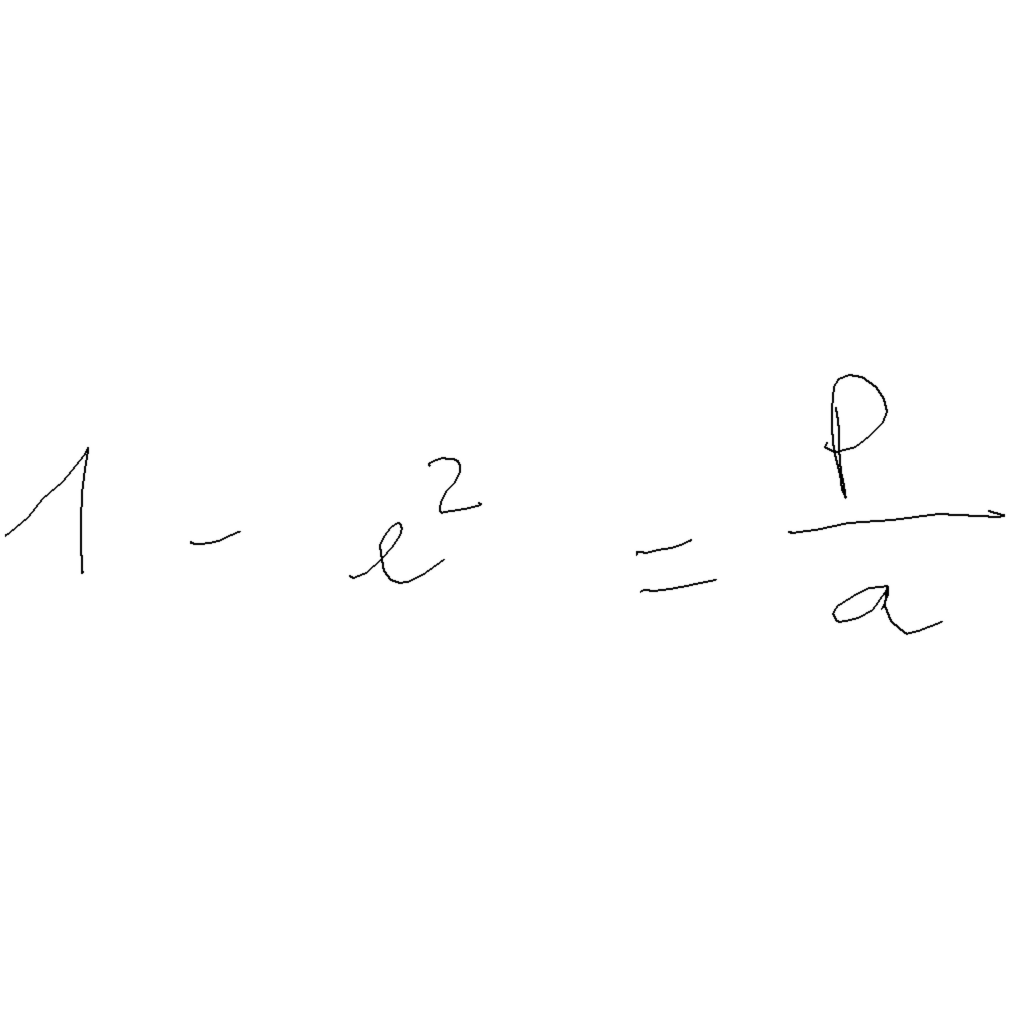 1 - e^2 = \frac{p}{a}